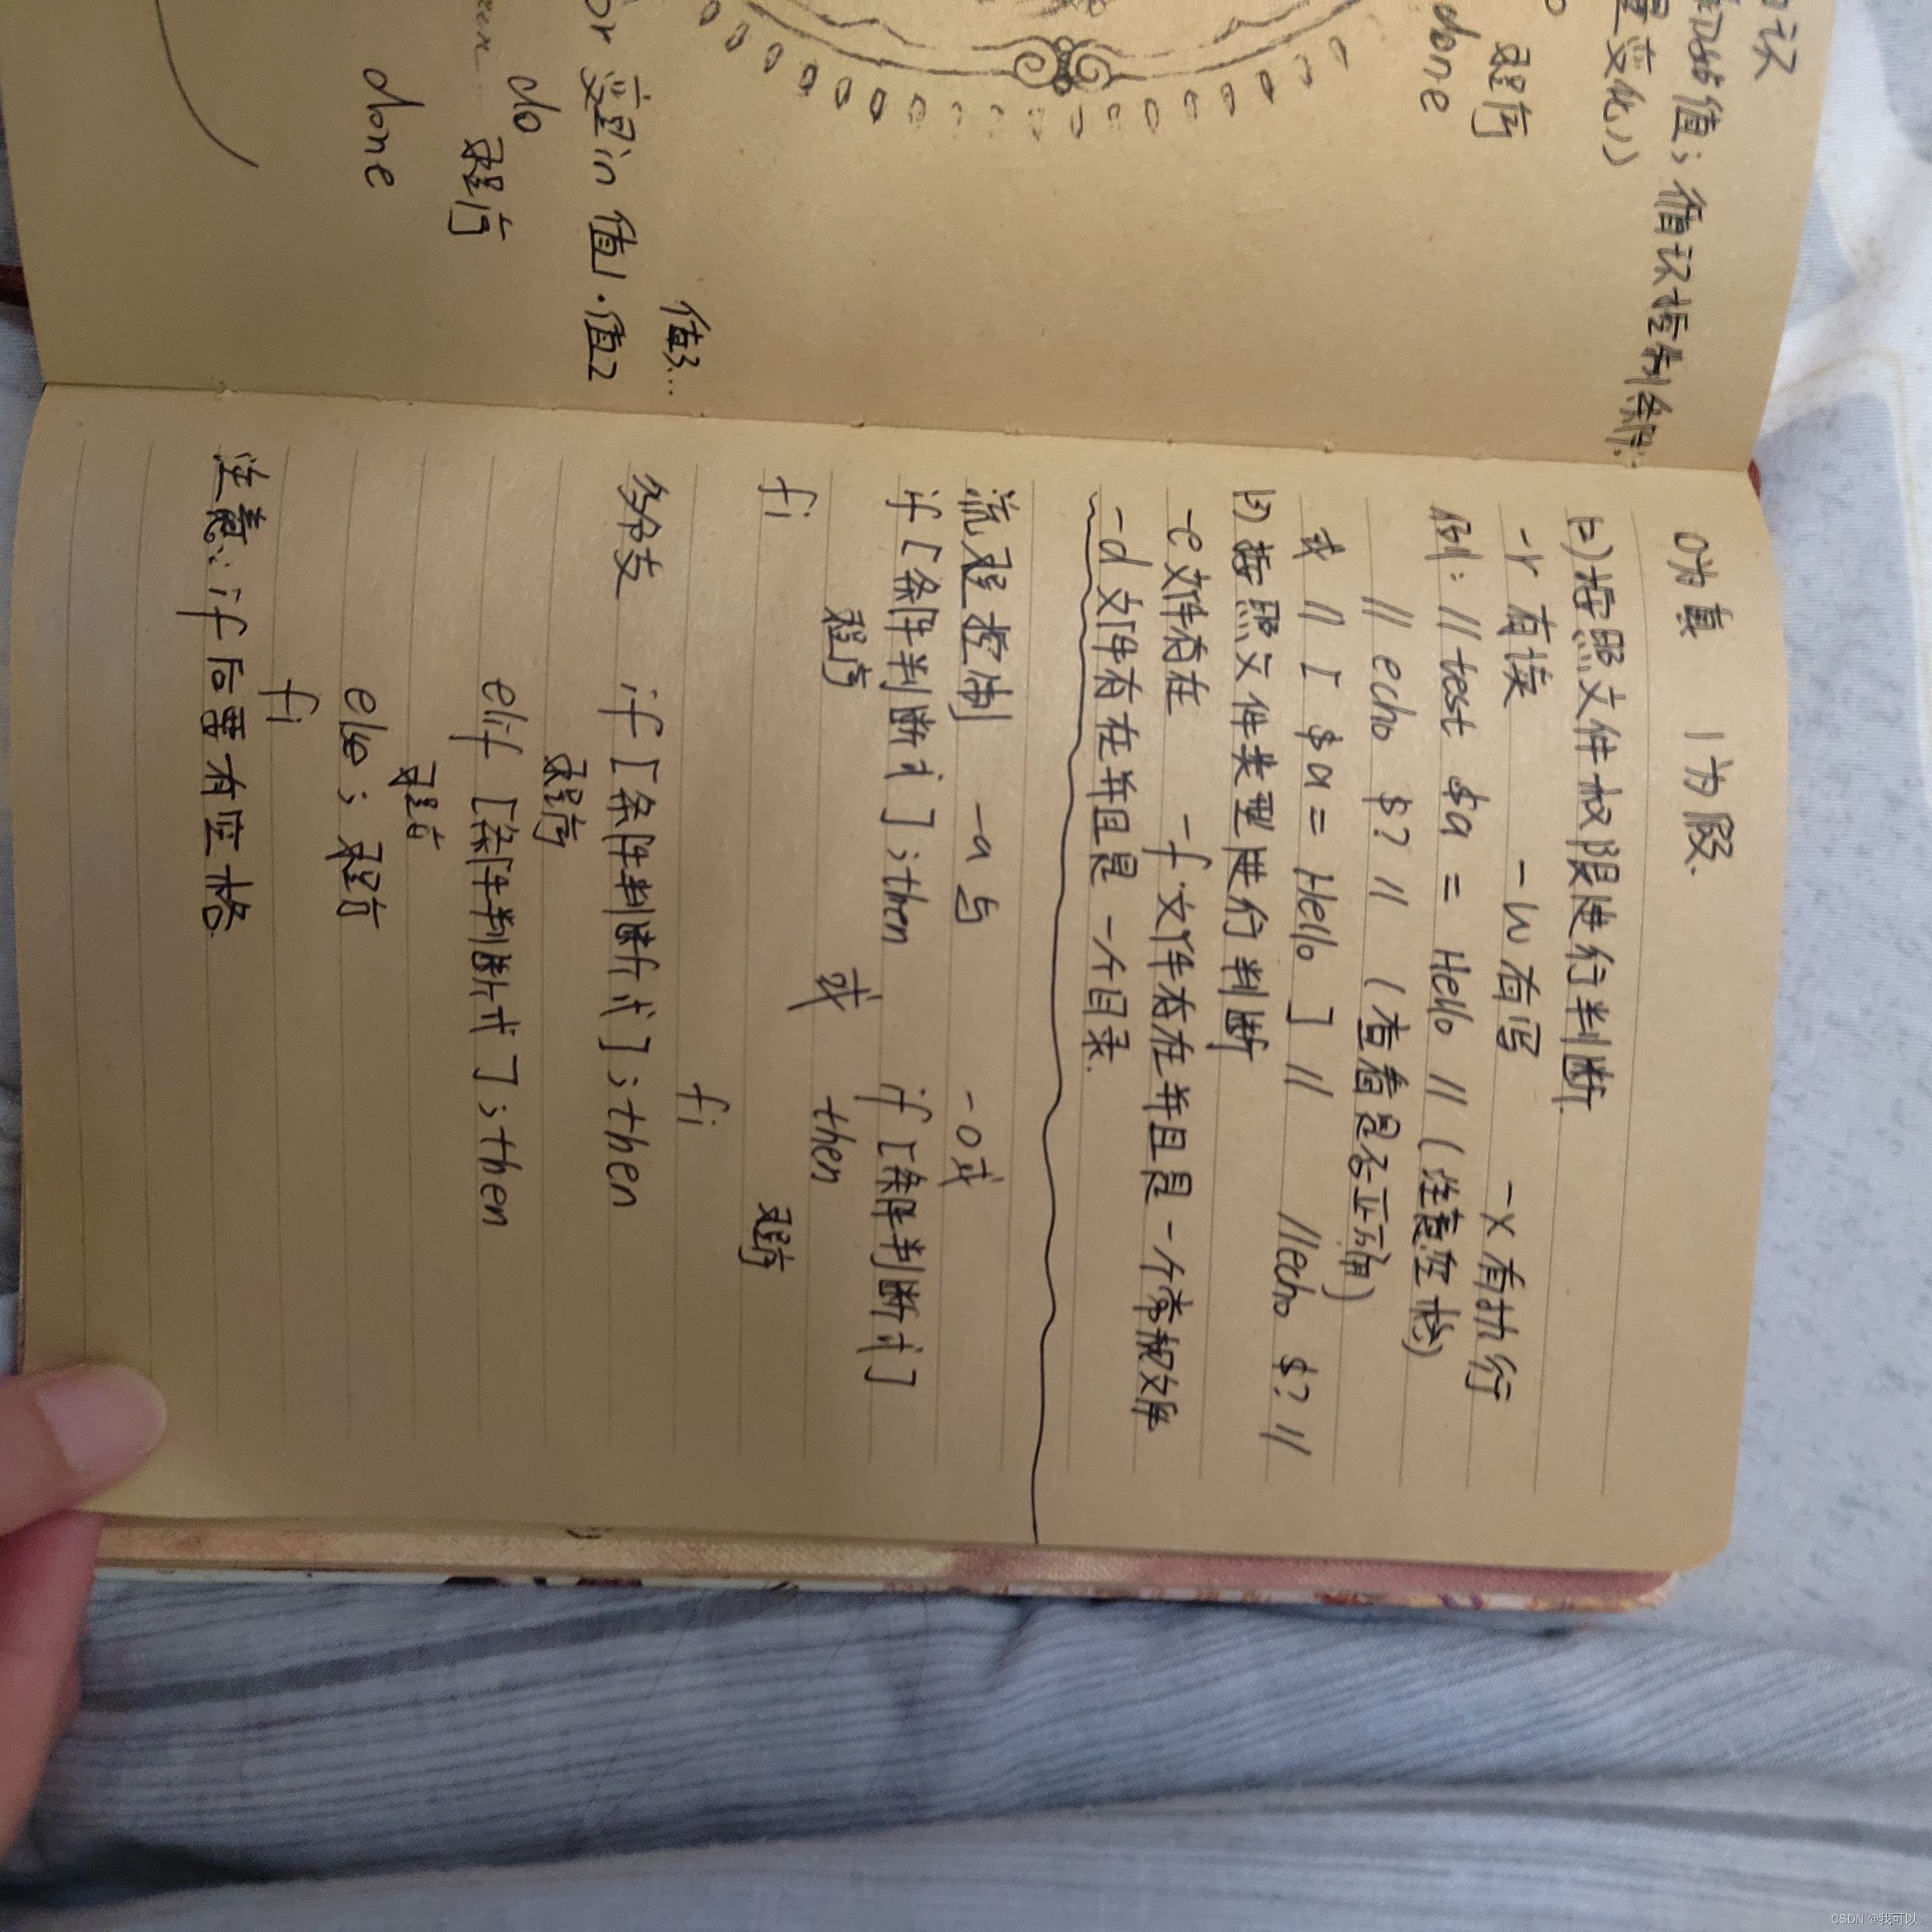 初始值；循环控制条件；
量变化))
程序
done
or 变量 in 值1 · 值2
值3...
do
程序
done
0为真 1为假.
(2)按照文件权限进行判断.
-r 有读 -w 有写 -x 有执行
例: // test $a = Hello // (注意空格)
// echo $? // (查看是否正确)
或 // [ $a = Hello ] // //echo $? //
(3) 按照文件类型进行判断
-e 文件存在 -f 文件存在并且是一个常规文件
-d 文件存在并且是 一个目录.
流程控制 -a 与 -o 或
if [条件判断式] ;then
程序
fi
或
if [条件判断式]
then
程序
fi
多分支 if [条件判断式] ;then
程序
elif [条件判断式] ;then
程序
else ; 程序
fi
注意: if 后要有空格.
CSDN @我可以